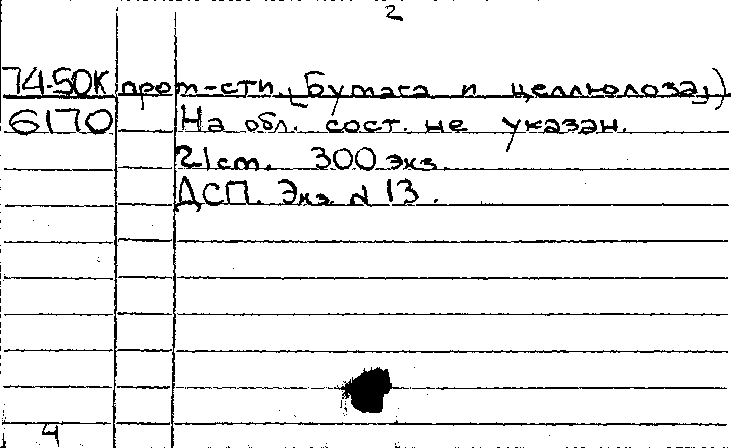 2
74-50К пром-сти. (Бумага и целлюлоза,)
6170 На обл. сост. не указан.
21 ст. 300 экз.
ДСП. Экз. № 13.
4